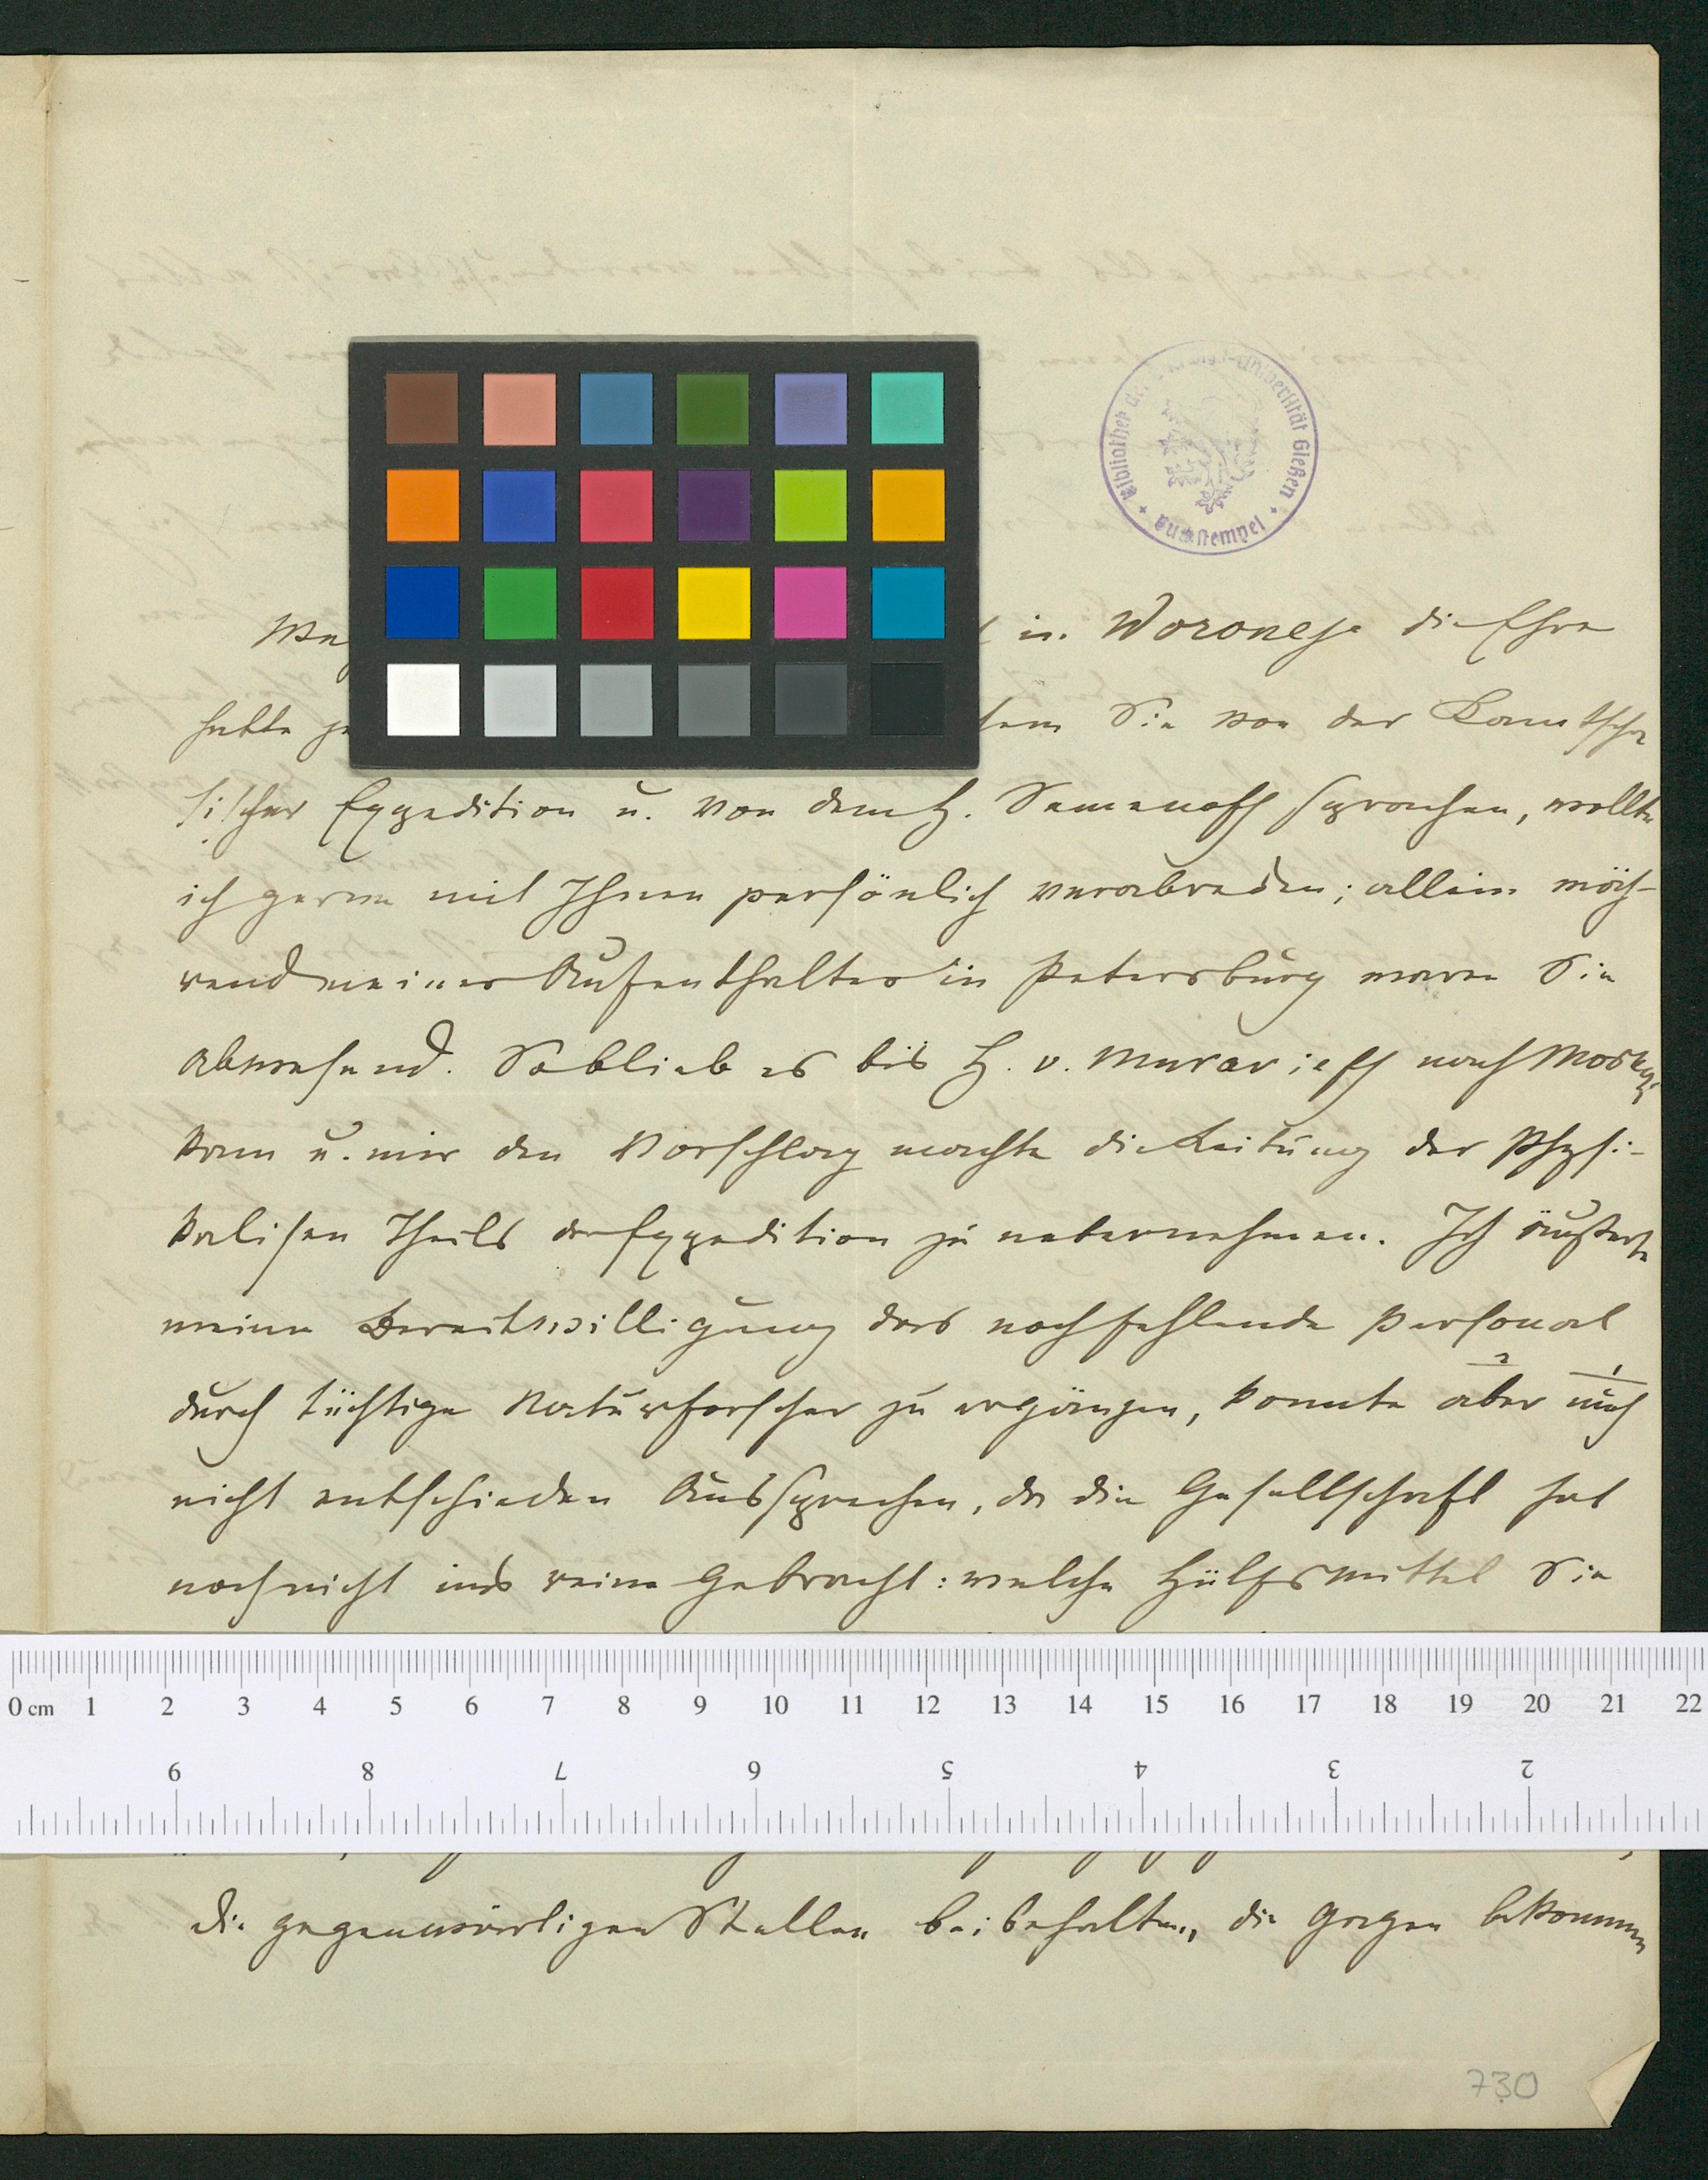 Bibliothek der Ludwigs-Universität Gießen
in. Woronesje die Ehre
hatte
Sie von der Kamtscha
tischer Expedition u. von dem H. Semenoff sprachen, wollte
ich gerne mit Ihnen persönlich verabreden; allein wäh-
rend meines Aufenthaltes in Petersburg waren Sie
abwesend. So blieb es bis H. v. Muravieff nach Moskau
kam u. mir den Vorschlag machte die Leitung der Physi-
kalisen Theils der Expedition zu uebernehmen. Ich äußerte
meine Bereitswilligung das noch fehlende Personal
2 1
durch tüchtige Naturforscher zu ergänzen, konnte aber mich
nicht entschieden Aussprechen, da die Gesellschaft hat
noch nicht ins reine Gebracht: welche Hülfsmittel Sie
0 cm 1 2 3 4 5 6 7 8 9 10 11 12 13 14 15 16 17 18 19 20 21 22
9 8 7 6 5 4 3 2
die gegenwärtigen Stellen beibehalten, die Gagen bekommen
730